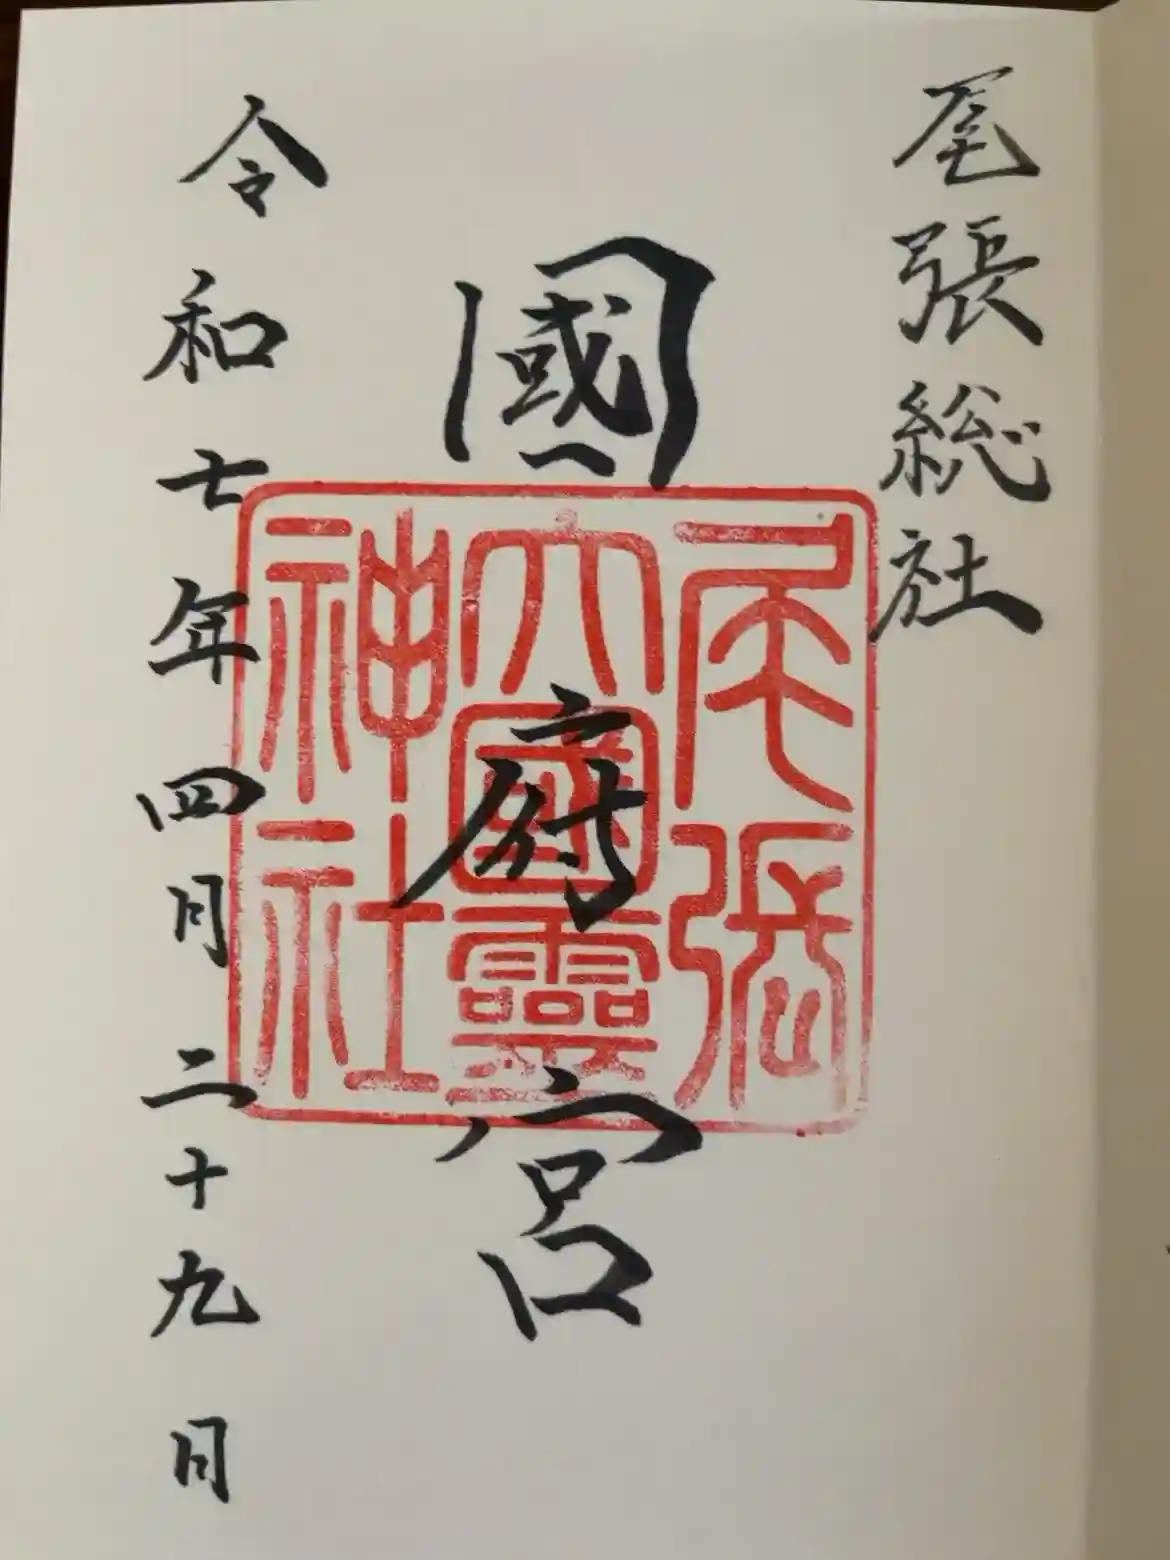 尾張総社
國府宮
尾張
大國霊
神社
令和七年四月二十九日